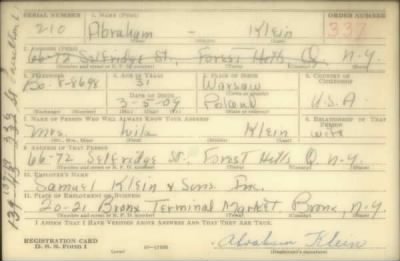 SERIAL NUMBER 1. NAME (Print) ORDER NUMBER
210 Abraham - Klein 337
2. ADDRESS (Print)
66-72 Selfridge St., Forest Hills Q. N.Y.
3. TELEPHONE 4. AGE IN YEARS 5. PLACE OF BIRTH 6. COUNTRY OF CITIZENSHIP
Bo-8-8698 31 Warsaw
DATE OF BIRTH
3-5-09 Poland U.S.A.
7. NAME OF PERSON WHO WILL ALWAYS KNOW YOUR ADDRESS 8. RELATIONSHIP OF THAT PERSON
Mrs. Klein wife
9. ADDRESS OF THAT PERSON
66-72 Selfridge St. Forest Hills Q. N.Y.
10. EMPLOYER'S NAME
Samuel Klein & Sons Inc.
11. PLACE OF EMPLOYMENT OR BUSINESS
20-21 Bronx Terminal Market Bronx, N.Y.
I AFFIRM THAT I HAVE VERIFIED ABOVE ANSWERS AND THAT THEY ARE TRUE.
REGISTRATION CARD
D. S. S. Form 1 Abraham Klein
(Registrant's signature)